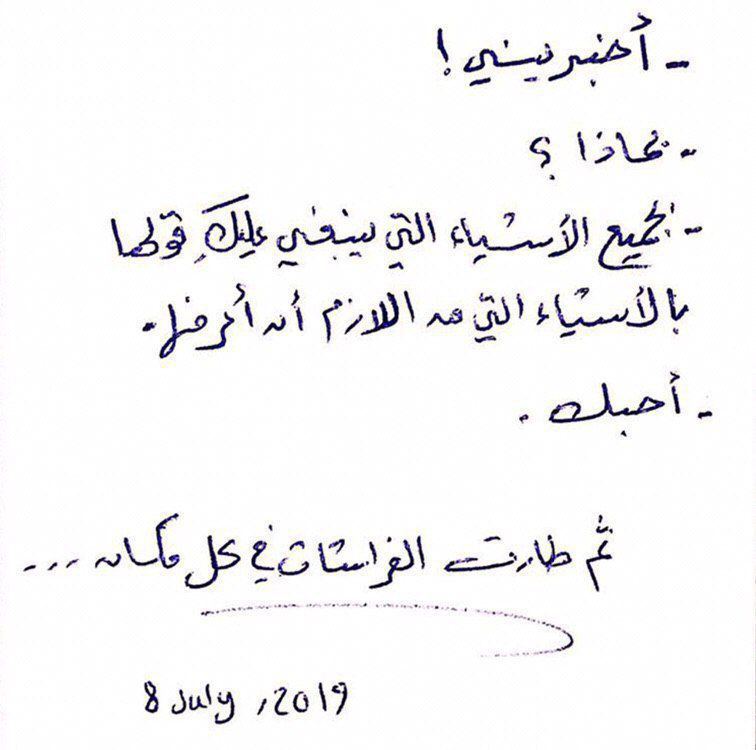 - أخبريني !
- بماذا ؟
- بجميع الأشياء التي ينبغي عليكِ قولها
بالأشياء التي من اللازم أن أعرفها.
- أحبك .
ثم طارت الفراشات في كل مكان ...
8 July , 2019